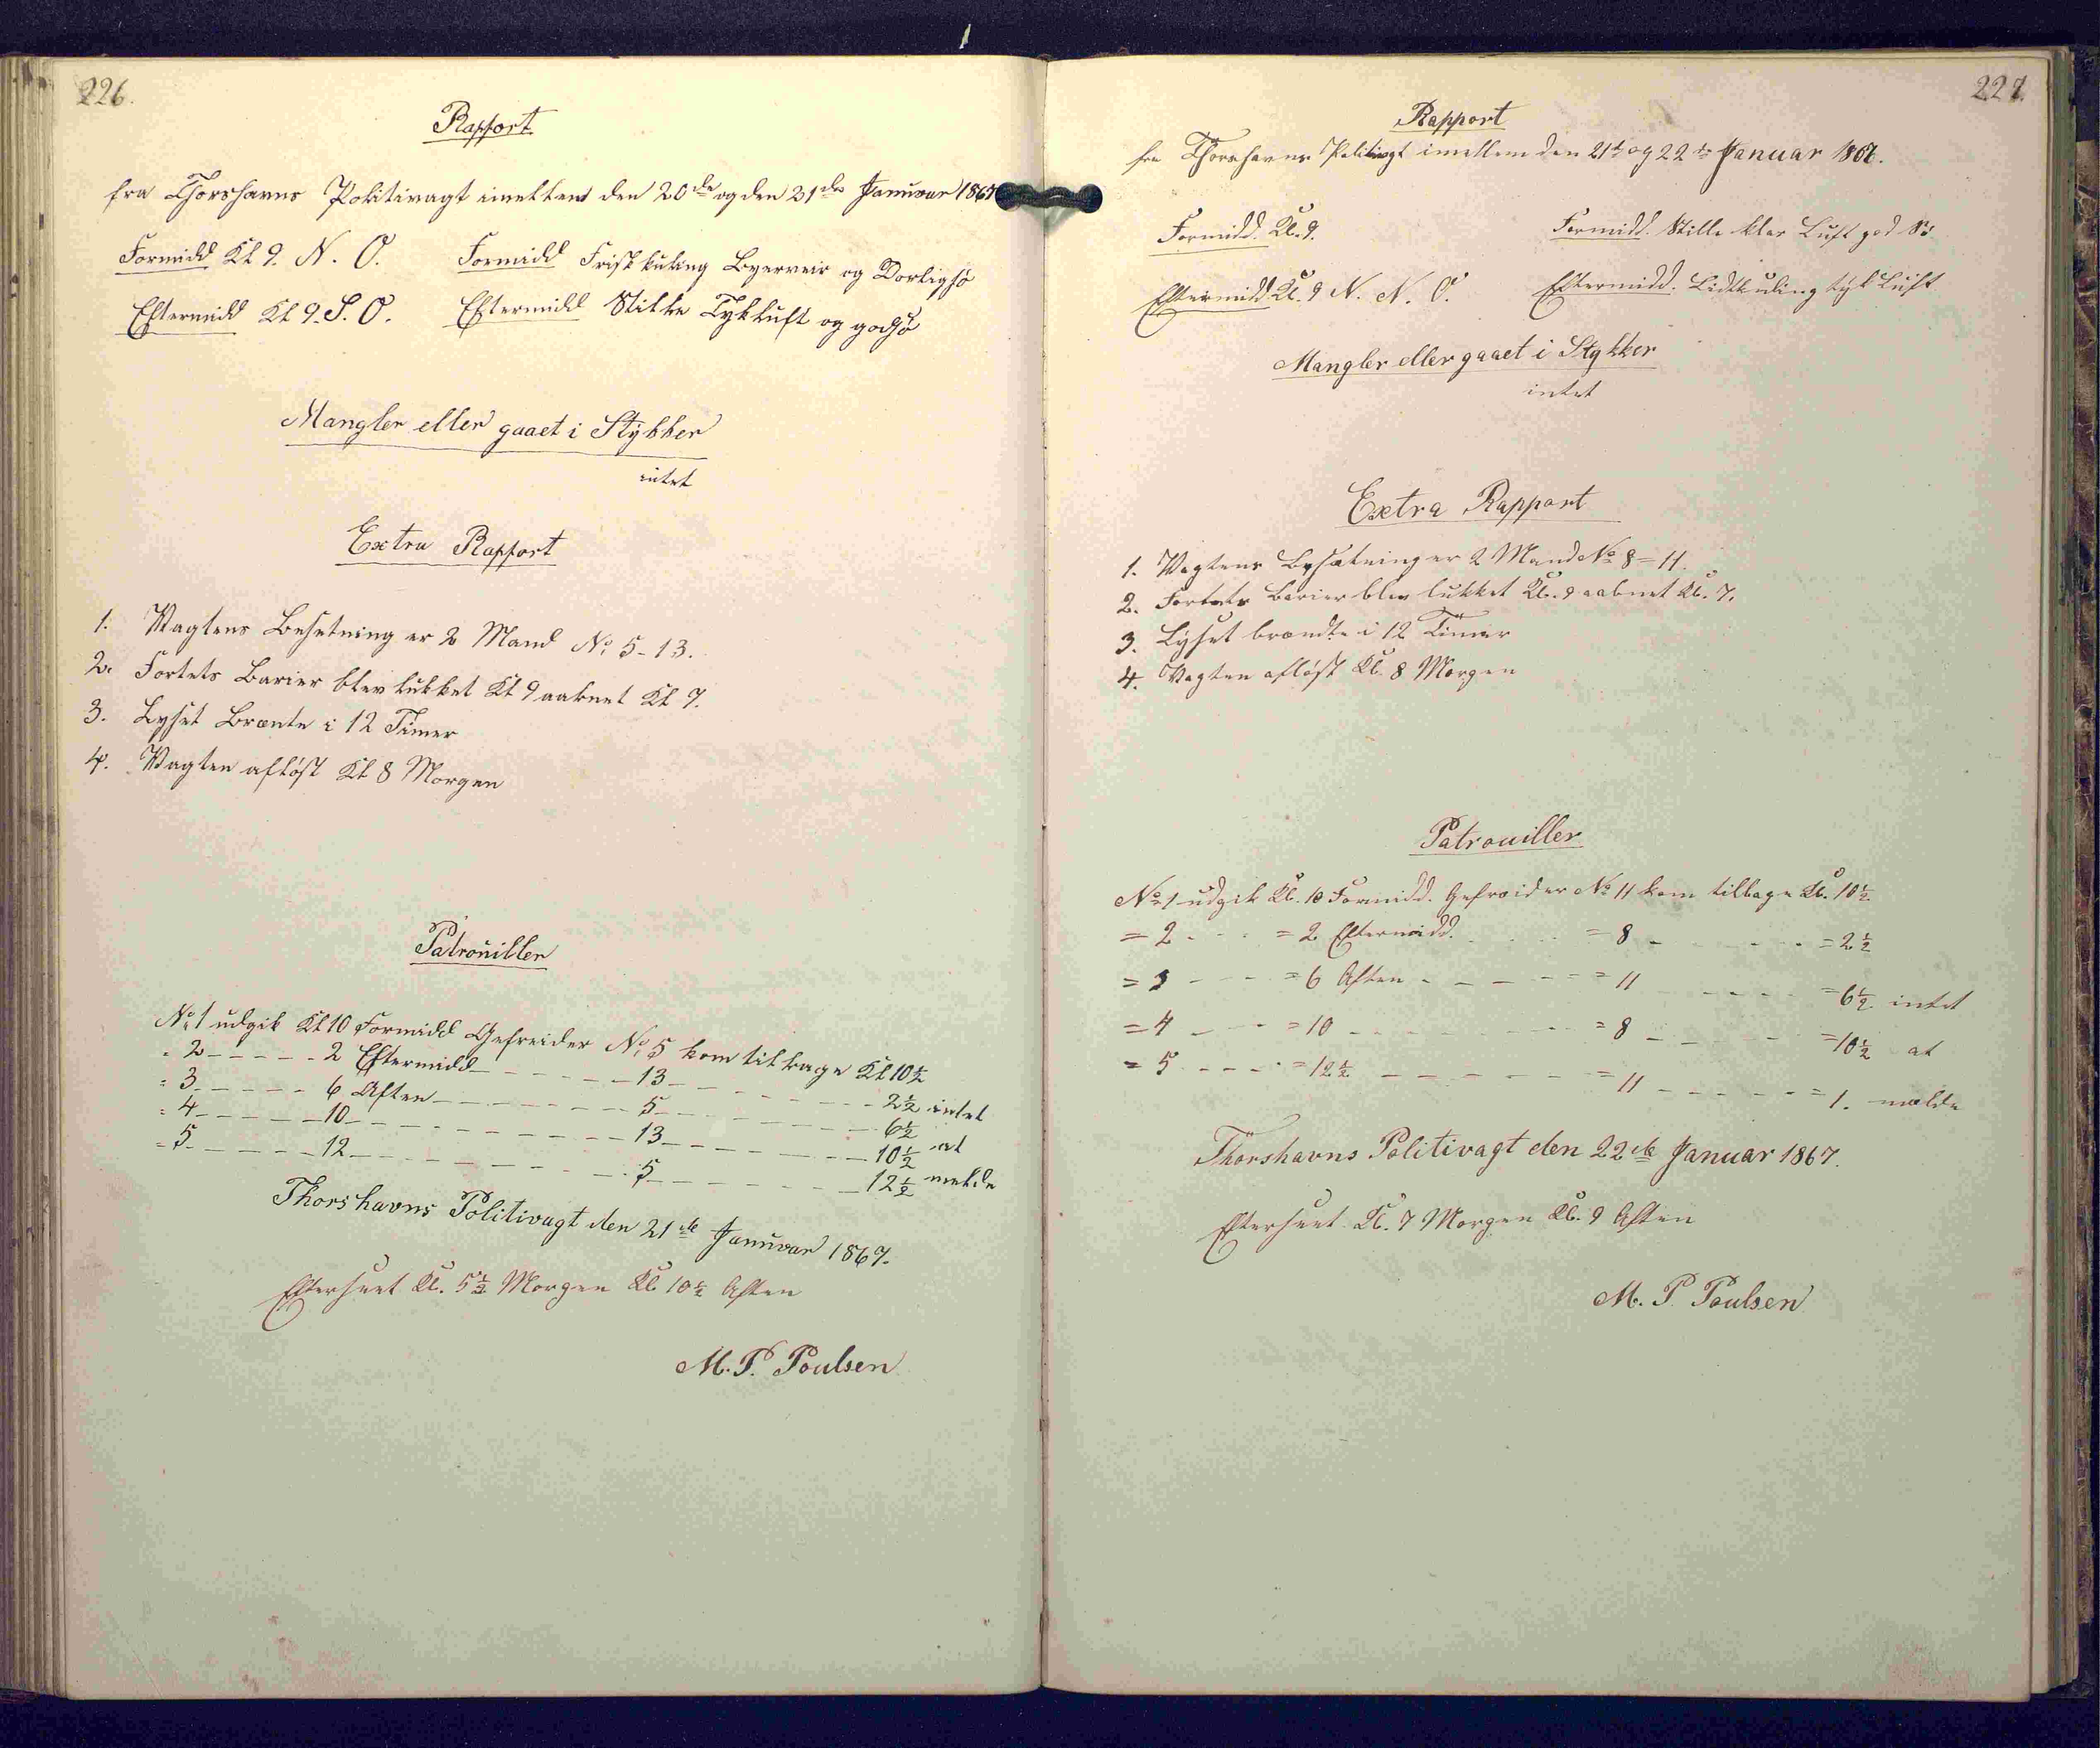 226.
Rapport
fra Thorshavns Politivagt imellem den 20de og den 21de Januar 1867
Formidd Kl 9. N. O. Formidd Frisk kuling Byerveir og Dorligsø
Eftermidd Kl 9. S. O. Eftermidd Stille Tykluft og godsø
Mangler eller gaaet i Stykker
intet
Extra Rapport
1. Vagtens Besetning er 2 Mand No 5-13.
2. Fortets Barier blev lukket Kl 9 aabnet Kl 7.
3. Lyset Brænte i 12 Timer
4. Vagten afløst Kl 8 Morgen
Patrouiller
No 1 udgik Kl 10 Formidd Gefreider No 5 kom tilbage Kl 10½
= 2 - - - - - 2 Eftermidd - - - - - 13 - - - - - - 2½ intet
= 3 - - - - - 6 Aften - - - - - - 5 - - - - - - 6½
= 4 - - - - - 10 - - - - - - - 13 - - - - - - 10½ at
= 5 - - - - - 12 - - - - - - - 5 - - - - - - 12½ melde
Thorshavns Politivagt den 21de Januar 1867.
Efterseet Kl. 5½ Morgen Kl. 10½ Aften
M. P. Poulsen
227.
Rapport
fra Thorshavns Politivagt imellem den 21de og 22de Januar 1867.
Formidd. Kl. 9. Formidd. Stille klar Luft god Sö
Eftermidd. Kl. 9 N. N. O. Eftermidd. Lidt kuling tyk Luft
Mangler eller gaaet i Stykker
intet
Extra Rapport
1. Vagtens Besætning er 2 Mand No 8 = 11.
2. Fortets Barier blev lukket Kl. 9 aabnet Kl. 7.
3. Lyset brændte i 12 Timer
4. Vagten afløst Kl. 8 Morgen
Patrouiller
No 1 udgik Kl. 10 Formidd. Gefreider No 11 kom tilbage Kl. 10½
= 2 - - - = 2 Eftermidd. - - - = 8 - - - - - = 2½
= 3 - - - = 6 Aften - - - - - = 11 - - - - = 6½ intet
= 4 - - - = 10 - - - - - - = 8 - - - - - = 10½ at
= 5 - - - = 12½ - - - - - - = 11 - - - - - = 1. melde
Thorshavns Politivagt den 22de Januar 1867.
Efterseet Kl. 7 Morgen Kl. 9 Aften
M. P. Poulsen